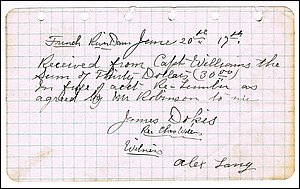 French River Dam June 20th 17th
Received from Capt Williams the
Sum of Thirty Dollars (30.00)
in full of acct. Re-Timber as
agreed by Mr Robinson to me
James Dokis
Per
Witness
Alex Lang